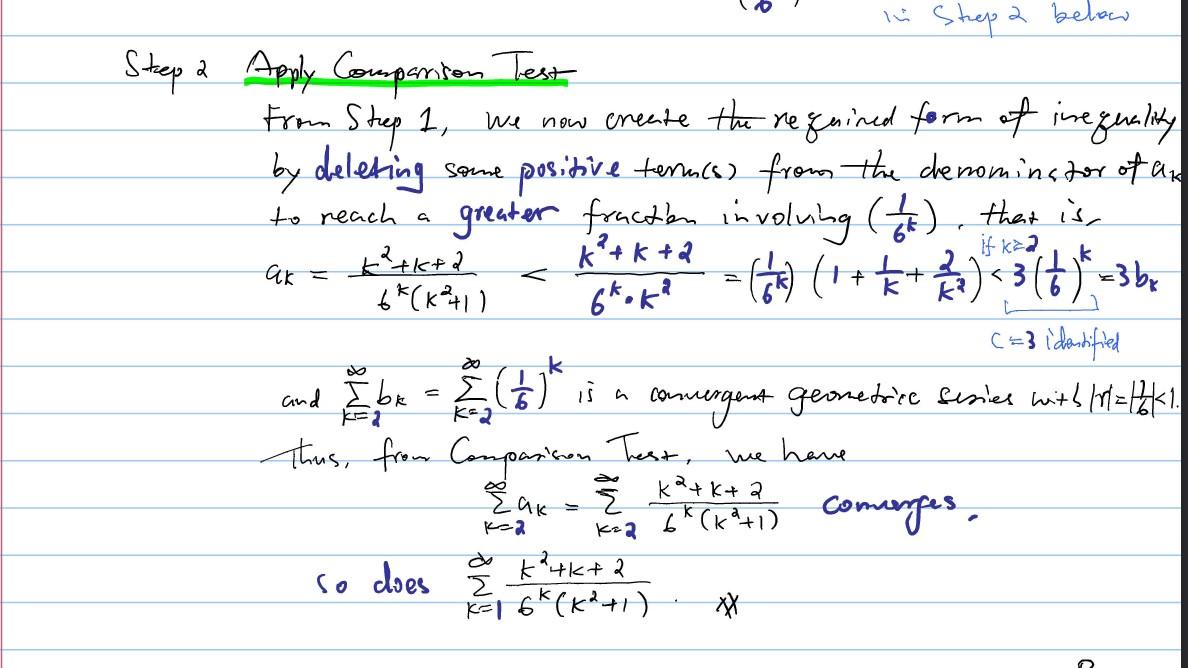 (6)
in Step 2 below
Step 2 Apply Comparison Test
From Step 1, we now create the required form of inequality
by deleting some positive term(s) from the denominator of aₖ
to reach a greater fraction involving (1/6ᵏ), that is,
if k≥2
aₖ = (k²+k+2)/(6ᵏ(k²+1)) < (k²+k+2)/(6ᵏ•k²) = (1/6ᵏ)(1 + 1/k + 2/k²) < 3(1/6)ᵏ = 3bₖ
C=3 identified
and ∑_{k=2}^{∞} bₖ = ∑_{k=2}^{∞} (1/6)ᵏ is a convergent geometric series with |r|=|1/6|<1.
Thus, from Comparison Test, we have
∑_{k=2}^{∞} aₖ = ∑_{k=2}^{∞} (k²+k+2)/(6ᵏ(k²+1)) converges.
so does ∑_{k=1}^{∞} (k²+k+2)/(6ᵏ(k²+1)).